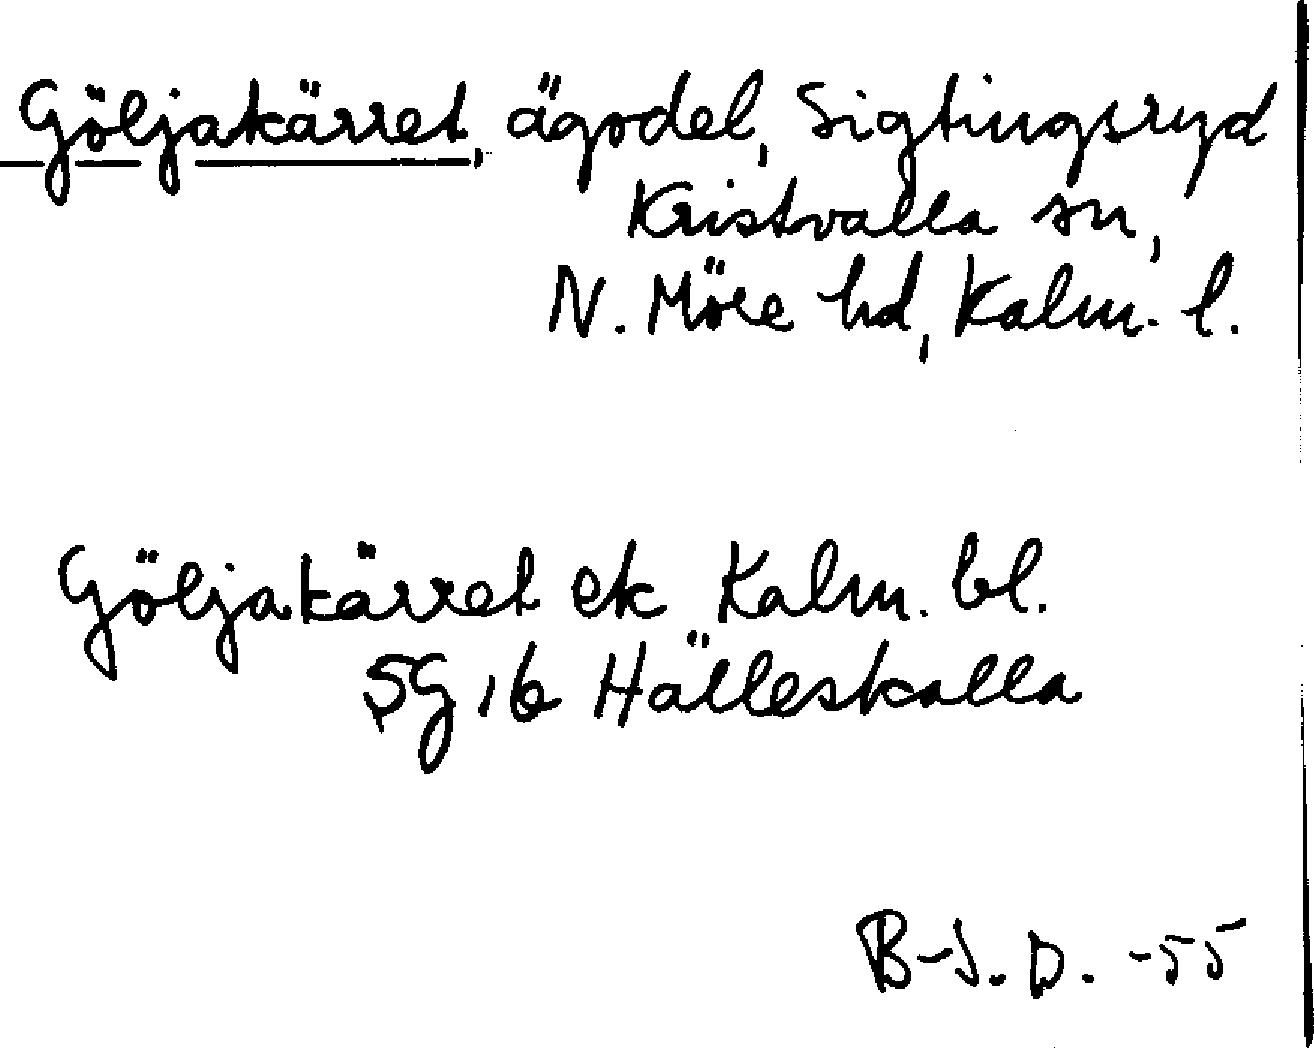 Göljakärret, ägodel, Sigtingsryd
Kristvalla sn,
N. Möre hd, Kalm. l.
Göljakärret ek Kalm. bl.
5G 1b Hälleskalla
B-J. D. -55